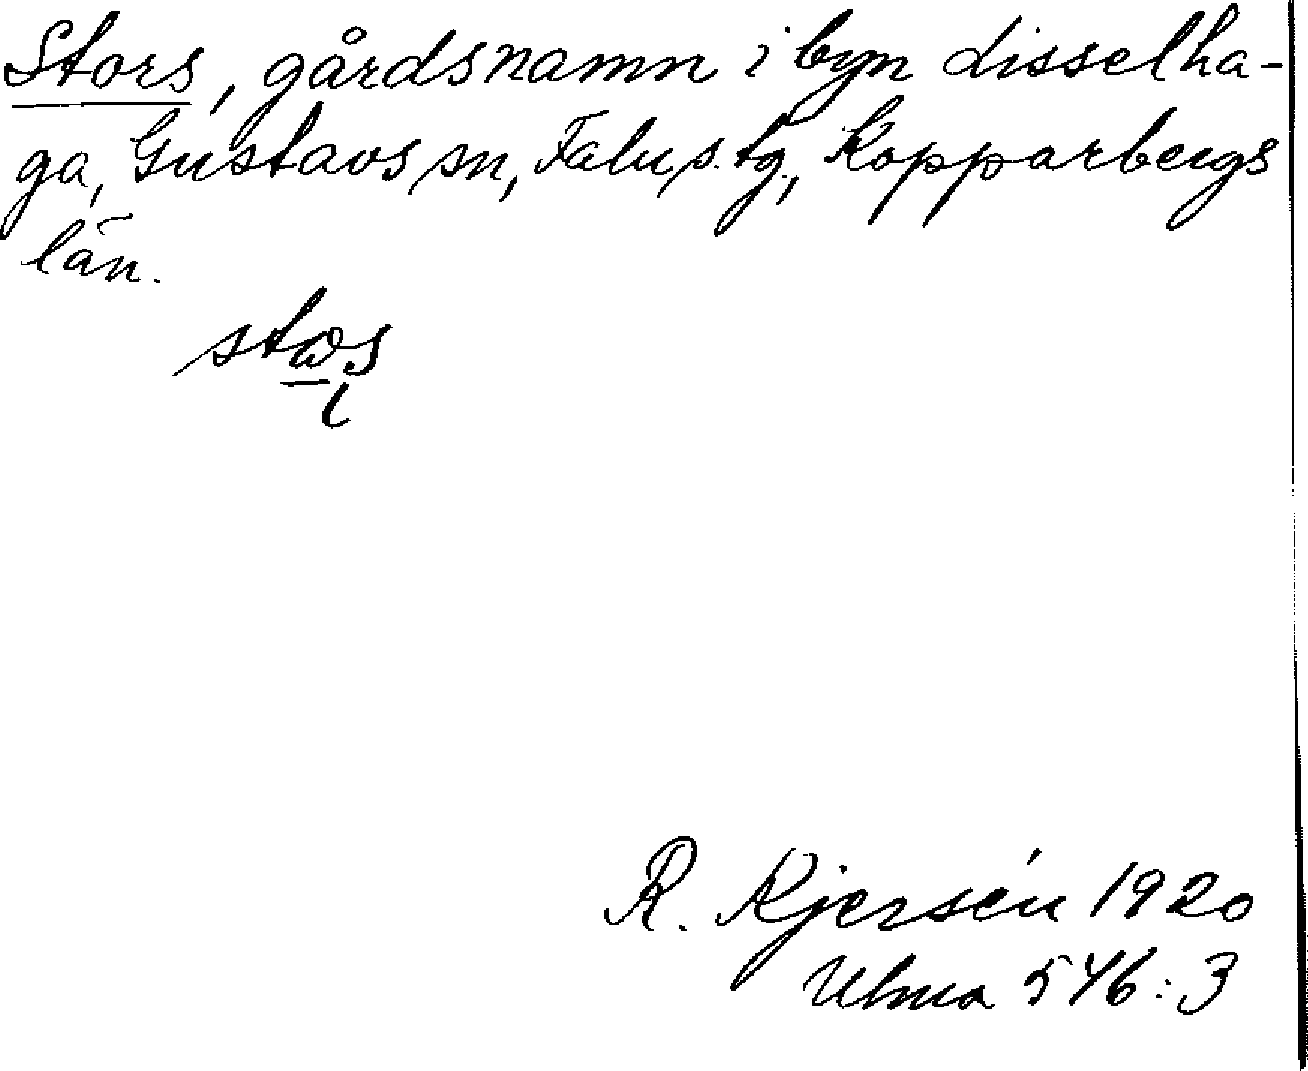 Stors, gårdsnamn i byn Disselha-
ga, Gustavs sn, Falu s. tg., Kopparbergs
län.
R. Kjersén 1920
Ulma 546:3